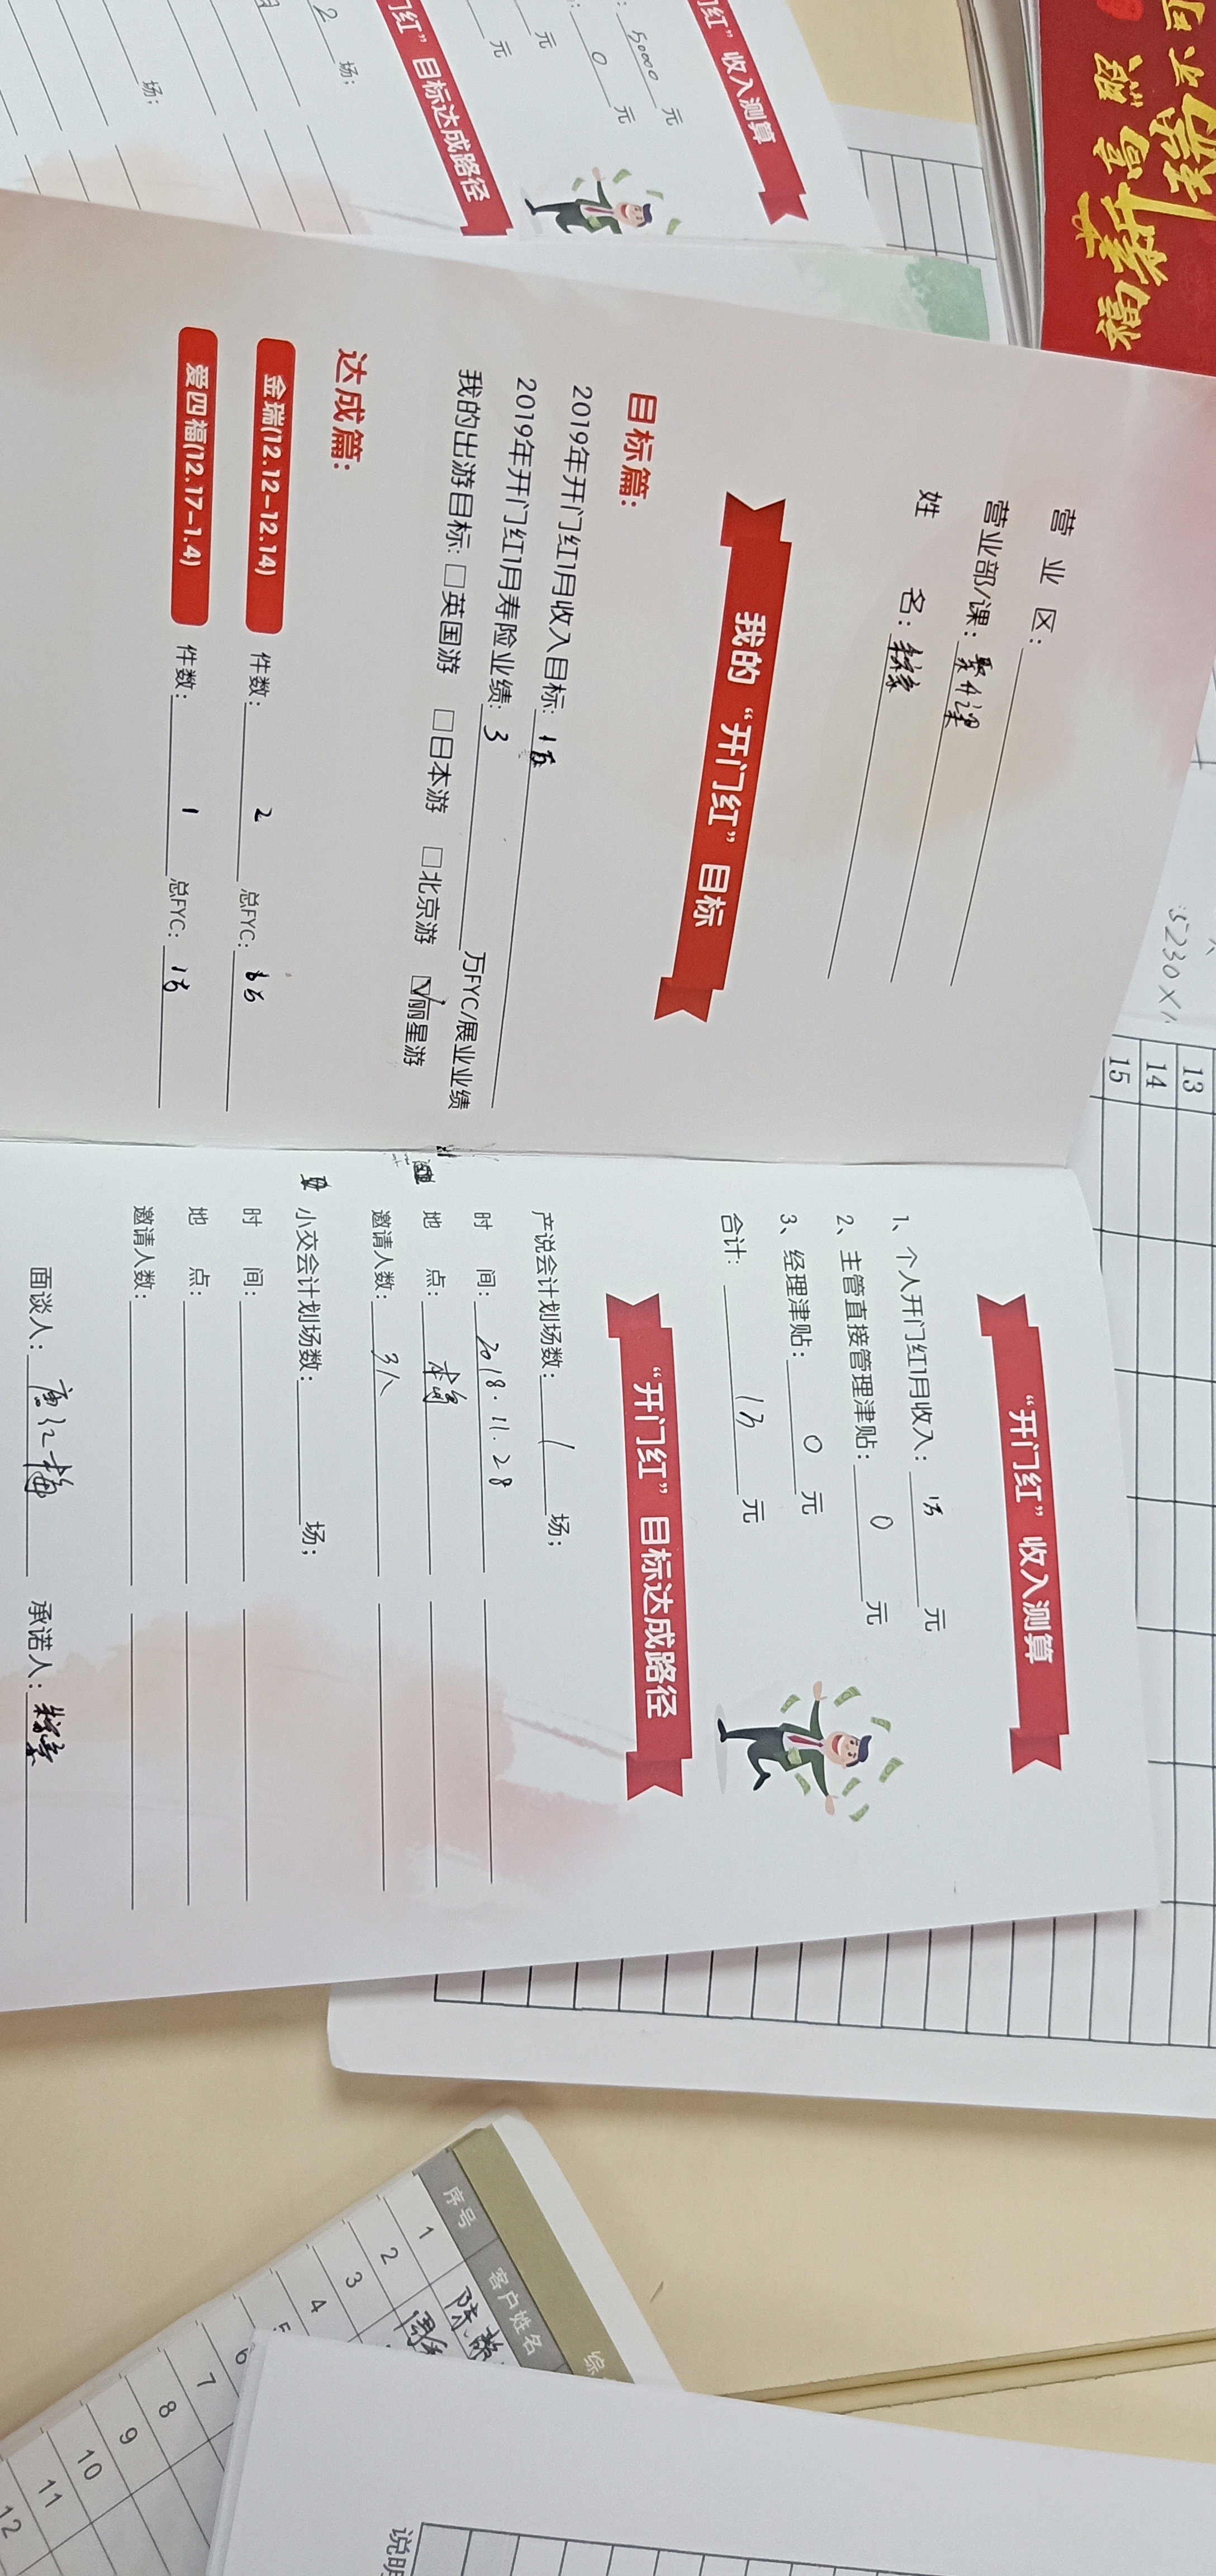 营业区：
营业部/课：
姓名：
我的“开门红”目标
目标篇：
2019年开门红1月收入目标：1万
2019年开门红1月寿险业绩：3万FYC/展业业绩
我的出游目标：□英国游 □日本游 □北京游 ☑丽星游
达成篇：
金瑞(12.12-12.14) 件数：2 总FYC：
爱四福(12.17-1.4) 件数：1 总FYC：1万
“开门红”收入测算
1、个人开门红1月收入：1万元
2、主管直接管理津贴：0元
3、经理津贴：0元
合计：1万元
“开门红”目标达成路径
产说会计划场数：1场；
时间：2018.11.28
地点：
邀请人数：3人
小交会计划场数：场；
时间：
地点：
邀请人数：
面谈人：唐红梅 承诺人：
红”收入测算
50000元
0元
元
元
门红”目标达成路径
2场；
场；
高照
新
福
不可
5230X
13
14
15
序号 客户姓名
综
1
2
3
4
5
6
7
8
9
10
11
12
说明